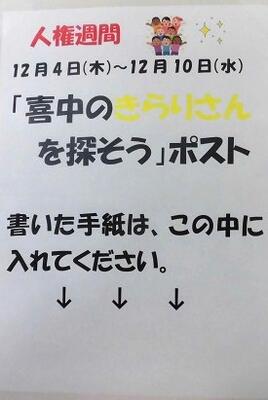 人権週間
12月4日(木)~12月10日(水)
「喜中のきらりさん
を探そう」ポスト
書いた手紙は、この中に
入れてください。
↓ ↓ ↓